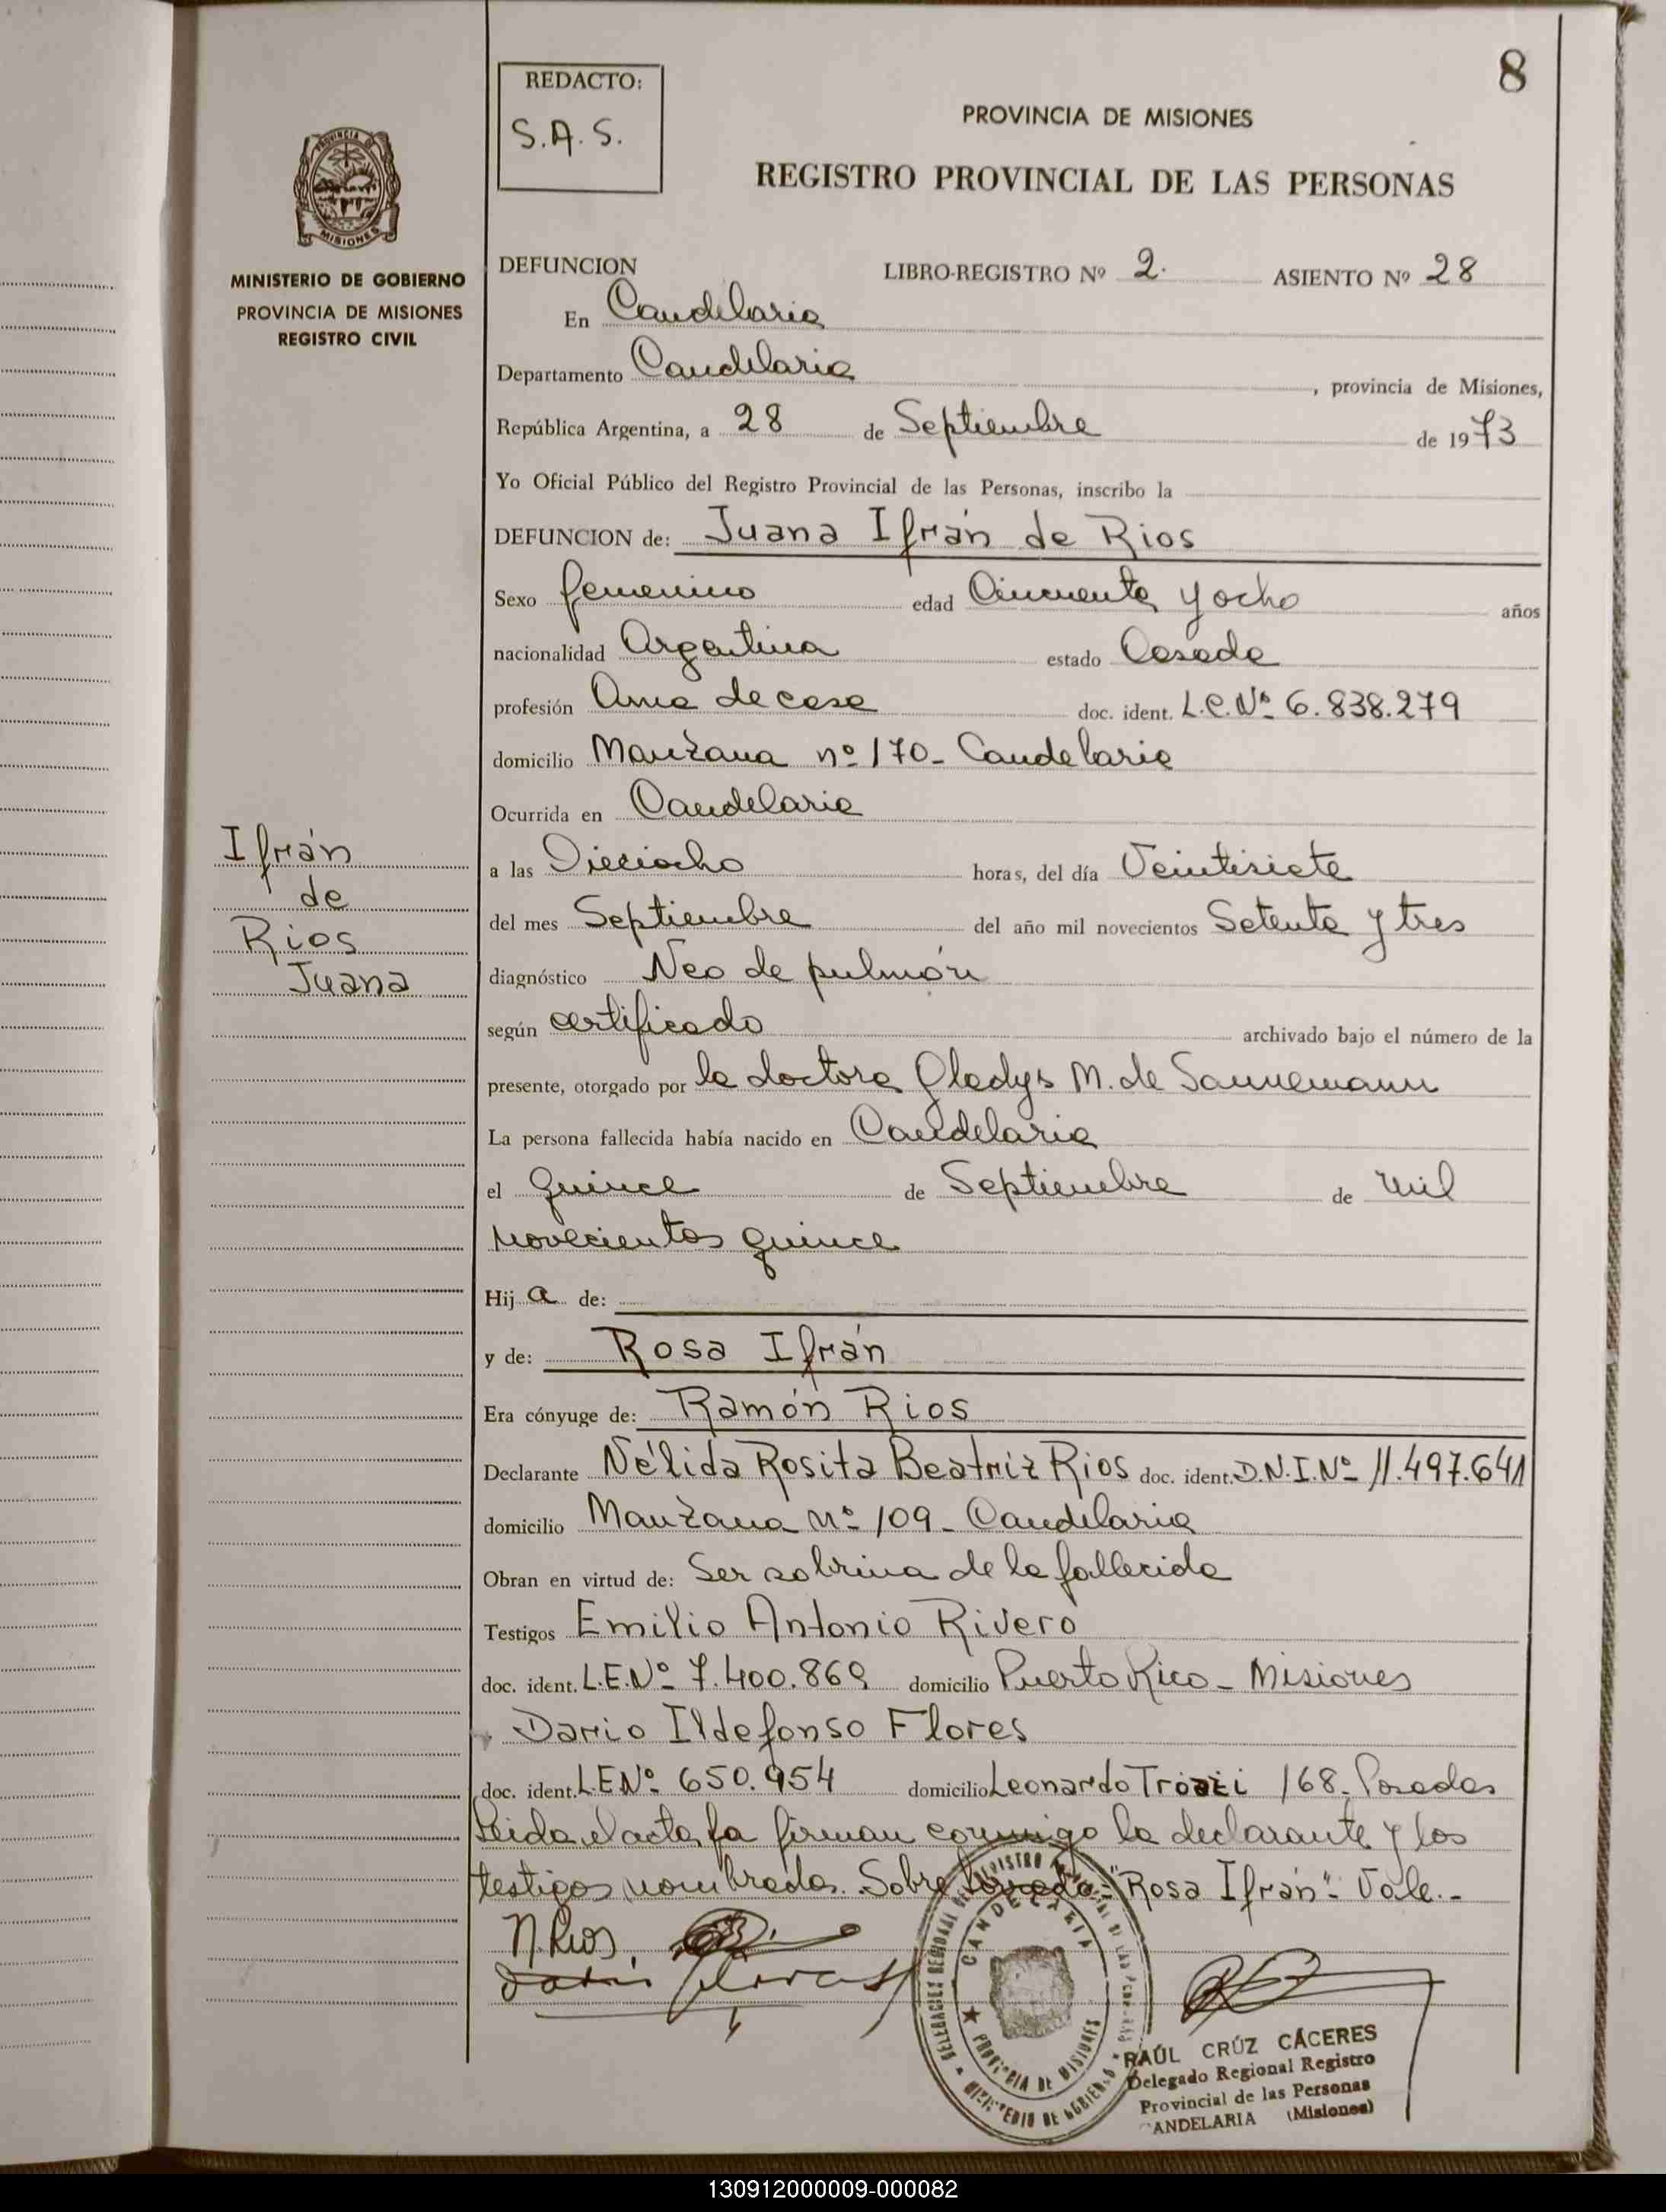 8
REDACTO:
S.A.S.
PROVINCIA DE MISIONES
REGISTRO PROVINCIAL DE LAS PERSONAS
PROVINCIA DE
MISIONES
MINISTERIO DE GOBIERNO
PROVINCIA DE MISIONES
REGISTRO CIVIL
DEFUNCION LIBRO-REGISTRO Nº 2. ASIENTO Nº 28
En Candelaria
Departamento Candelaria, provincia de Misiones,
República Argentina, a 28 de Septiembre de 1973
Yo Oficial Público del Registro Provincial de las Personas, inscribo la
DEFUNCION de: Juana Ifrán de Rios
Sexo femenino edad Cincuenta y ocho años
nacionalidad Argentina estado Casada
profesión Ama de casa doc. ident. L.C.Nº 6.838.279
domicilio Manzana nº 170- Candelaria
Ocurrida en Candelaria
a las Dieciocho horas, del día Veintisiete
del mes Septiembre del año mil novecientos Setenta y tres
diagnóstico Neo de pulmón
según certificado archivado bajo el número de la
presente, otorgado por la doctora Gladys M. de Sannemann
La persona fallecida había nacido en Candelaria
el quince de Septiembre de mil
novecientos quince
Hij a de:
y de: Rosa Ifrán
Era cónyuge de: Ramón Rios
Declarante Nélida Rosita Beatriz Rios doc. ident. D.N.I.Nº 11.497.641
domicilio Manzana nº 109- Candelaria
Obran en virtud de: Ser sobrina de la fallecida
Testigos Emilio Antonio Rivero
doc. ident. L.E.Nº 7.400.869 domicilio Puerto Rico - Misiones
Dario Ildefonso Flores
doc. ident. L.E.Nº 650.954 domicilio Leonardo 168- Posadas
Leida el acta, la firman conmigo la declarante y los
testigos nombrados. Sobre borrado: "Rosa Ifrán"- Vale.-
Ifrán
de
Rios
Juana
N. Rios
CANDELARIA
PROVINCIA DE MISIONES
MINISTERIO DE GOBIERNO
RAÚL CRÚZ CÁCERES
Delegado Regional Registro
Provincial de las Personas
CANDELARIA (Misiones)
130912000009-000082